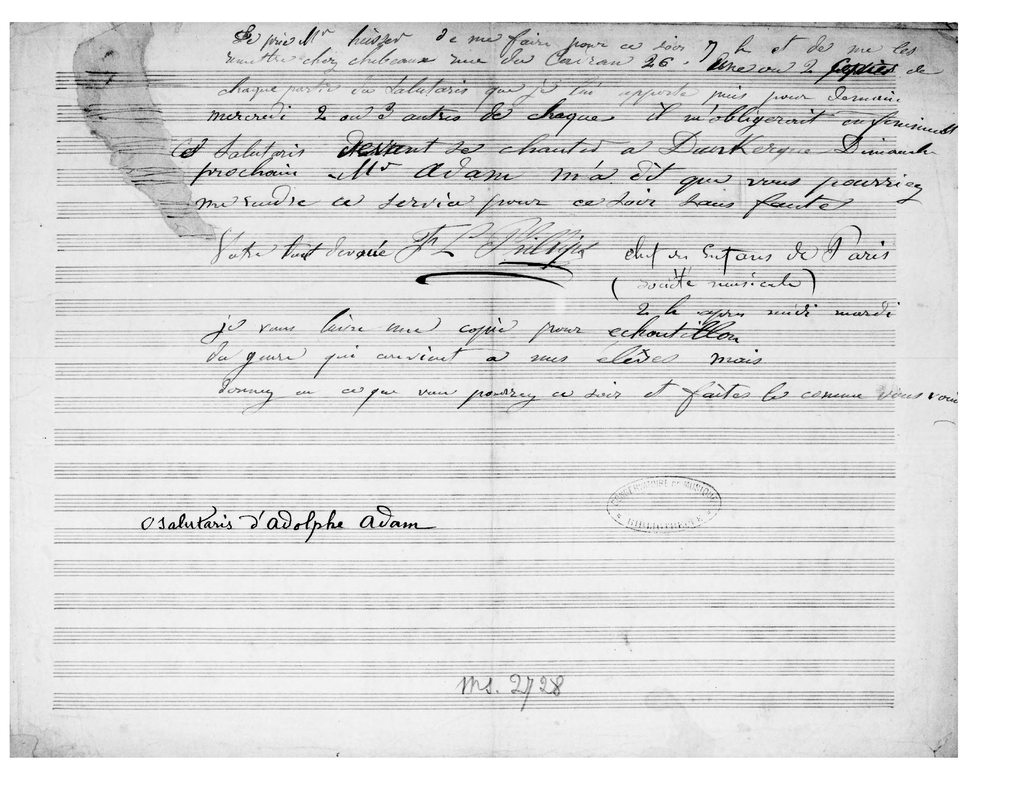 Je prie Mr de me faire pour ce soir 7 h et de me les
remettre chez rue du 26. Une ou 2 copies de
chaque partie du Salutaris que je lui apporte puis pour demain
mercredi 2 ou 3 autres de chaque il m'obligerait
O Salutaris devant se chanter a Dunkerque Dimanche
prochain Mr Adam m'a dit que vous pourriez
me rendre ce service pour ce soir sans faute
Votre tout devoué chef des Enfans de Paris
(société musicale)
2 h apres midi mardi
je vous livre une copie pour echantillon
du genre qui convient a mes élèves mais
donnez en ce que vous pourrez ce soir et faites le comme vous
CONSERVATOIRE DE MUSIQUE
BIBLIOTHEQUE
O Salutaris d'Adolphe Adam
Ms. 2728